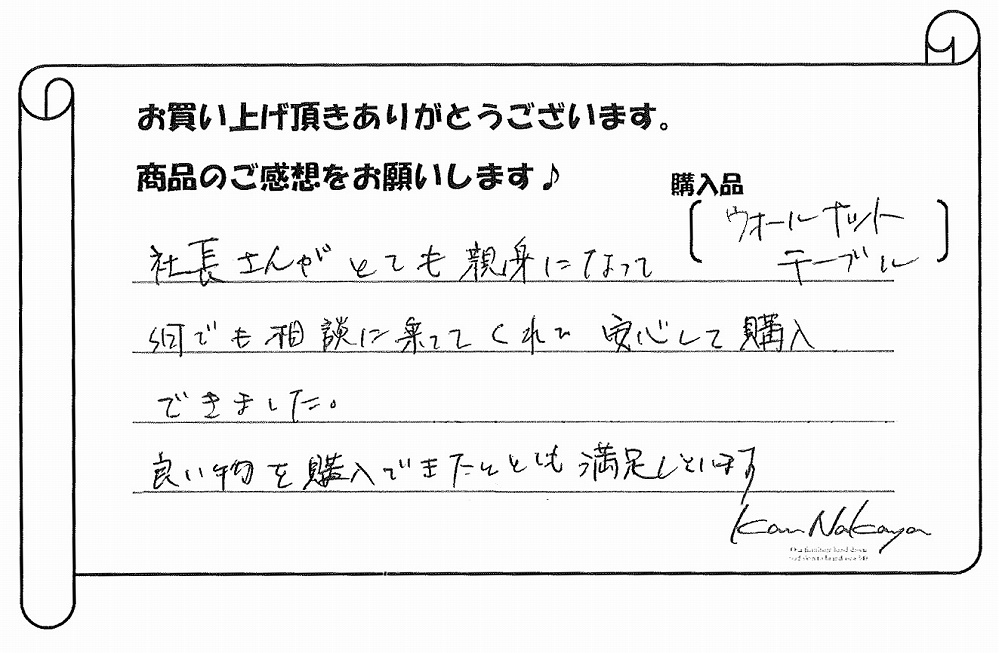 お買い上げ頂きありがとうございます。
商品のご感想をお願いします♪
購入品
ウォールナット
テーブル
社長さんがとても親身になって
何でも相談に乗ってくれて 安心して購入
できました。
良い物を購入できたととても満足しています
Kan Nakaya